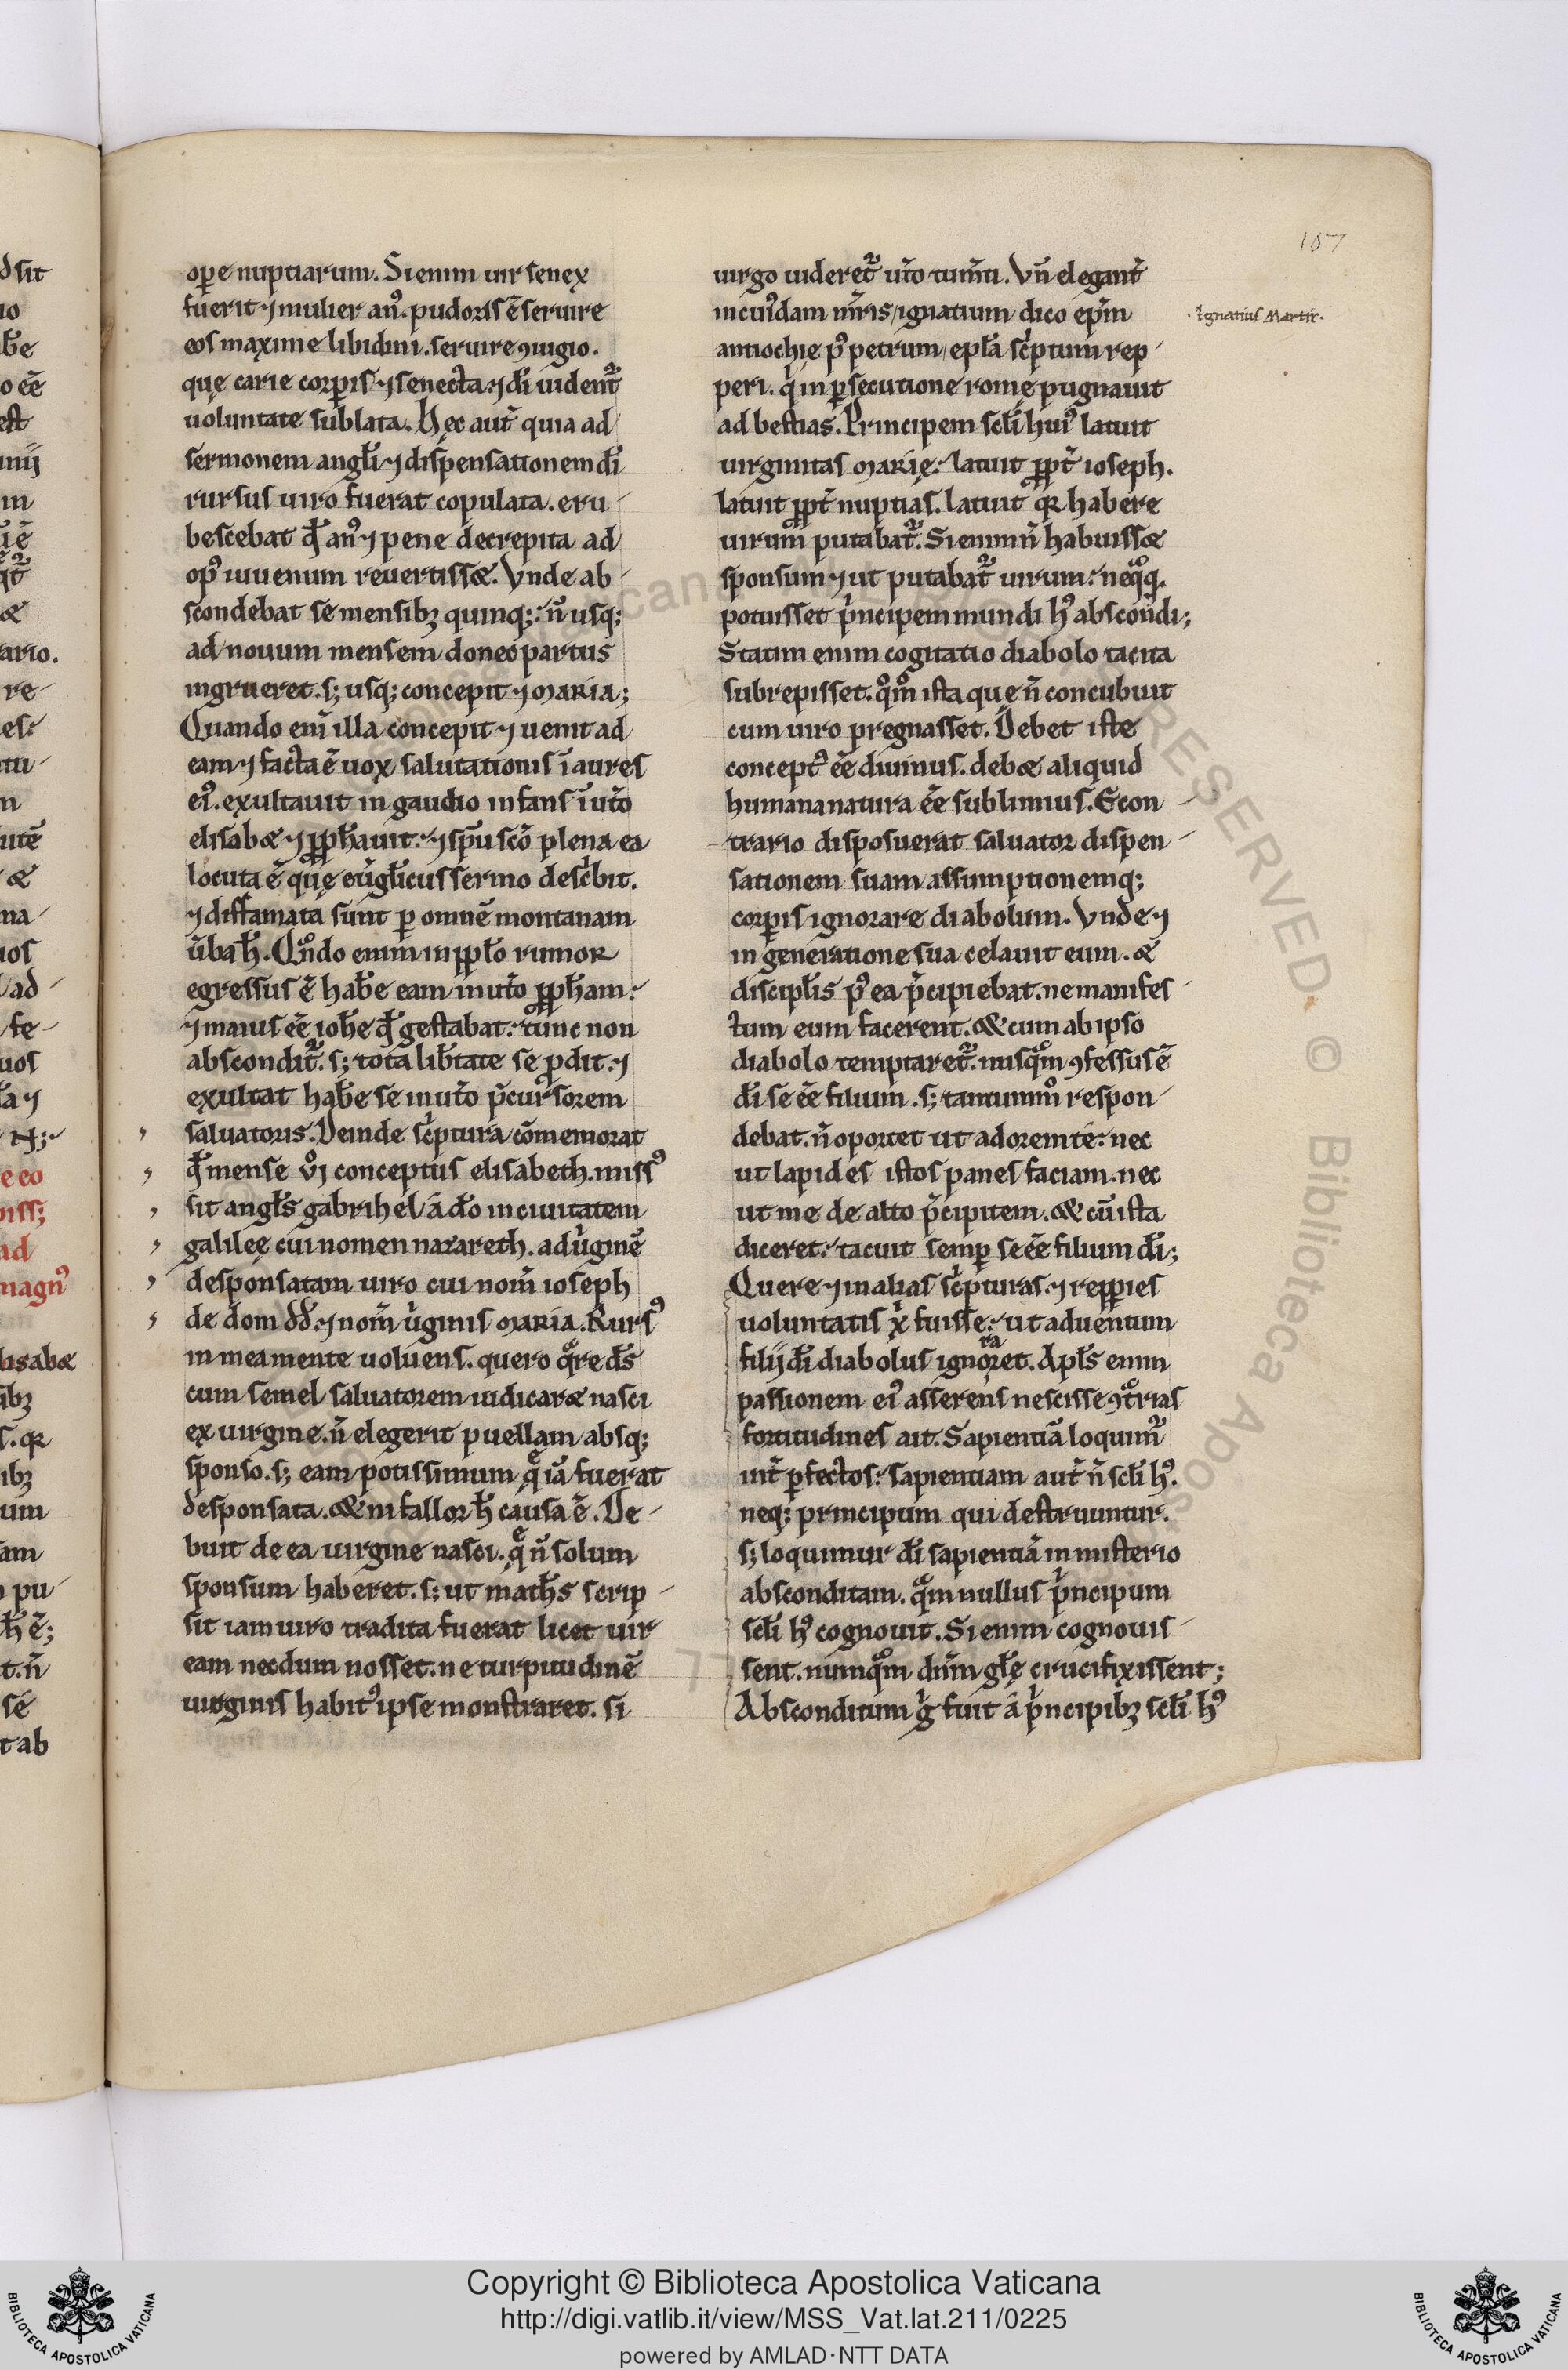 107
ope nuptiarum. Si enim uir senex
fuerit ⁊ mulier an᷒. pudoris ē seruire
eos maxime libidini. seruire ꝯiugio.
quę carie corꝑis ⁊ senecta. ⁊ dī uident᷑
uoluntate sublata. Hęc aut̄ quia ad
sermonem angl̄i ⁊ dispensationem dī
rursus uiro fuerat copulata. eru-
bescebat qđ an᷒ ⁊ pene decrepita ad
op᷒ iuuenum reuertisset. Vnde ab-
scondebat se mensibꝫ quinq;. n̄ usq;
ad nouum mensem donec partus
ingrueret. s; usq; concepit ⁊ maria;
Quando eni̅ illa concepit ⁊ uenit ad
eam ⁊ facta ē uox salutationis ī aures
ei᷒. exultauit in gaudio infans ī ut̄o
elisabet ⁊ ꝓph̄auit. ⁊ sp̄u sc̄o plena ea
locuta ē quę eūgl̄icus sermo desc̍bit.
⁊ diffamata sunt ꝑ omnē montanam
ūbah̄. Qn̊do enim in ppl̄o rumor
egressus ē hab̄e eam in ut̄o ꝓph̄am.
⁊ maius ēē ioh̄e qđ gestabat. tunc non
abscondit᷑. s; tota lib̄tate se ꝓdit. ⁊
exultat hab̄e se in ut̄o p̄cursorem
saluatoris. Deinde sc̍ptura cōmemorat
qđ mense ỏj conceptus elisabeth. miss᷒
sit angl̄s gabrihel ā dō in ciuitatem
galileę cui nomen nazareth. ad ūginē
desponsatam uiro cui nom̄ ioseph
de dom dđ. ⁊ nom̄ ūginis maria. Rurs᷒
in mea mente uoluens. quero qͣre ds̄
cum semel saluatorem iudicaret nasci
ex uirgine. n̄ elegerit puellam absq;
sponso. s; eam potissimum q̄ iā fuerat
desponsata. & ni fallor h̄ causa ē. De-
buit de ea uirgine nasci. q̄ n̄ solum
sponsum haberet. s; ut math̄s scrip-
sit iam uiro tradita fuerat licet uir
eam necdum nosset. ne turpitudinē
uirginis habit᷒ ipse monstraret. si
uirgo uideret᷑ ut̄o tum̄ti. Vn̄ elegant̄
in cui᷒dam m̄ris/ ignatium dico ep̄m
antiochie p᷒ petrum/ epl̄a sc̍ptum rep-
peri. q̍ in ꝑsecutione romę pugnauit
ad bestias. Principem scl̄i hui᷒ latuit
uirginitas marię. latuit ꝓpt̄ ioseph.
latuit ꝓpt̄ nuptias. latuit qꝛ habere
uirum putabat᷑. Si enim n̄ habuisset
sponsum ⁊ ut putabat᷑ uirum. neqͣq̄.
potuisset p̍ncipem mundi h᷒ abscondi;
Statim enim cogitatio diabolo tacita
subrepisset. qͦm̊ ista quę n̄ concubuit
cum uiro pregnasset. Debet iste
concept᷒ ēē diuinus. debet aliquid
humana natura ēē sublimius. Econ-
trario disposuerat saluator dispen-
sationem suam assumptionemq;
corꝑis ignorare diabolum. Vnde ⁊
in generatione sua celauit eum. &
discipl̄is p᷒ea p̄cipiebat. ne manifes-
tum eum facerent. & cum ab ipso
diabolo temptaret᷑. nusqͣm ꝯfessus ē
dī se ēē filium. s; tantummͦ respon-
debat. n̄ oportet ut adorem te. nec
ut lapides istos panes faciam. nec
ut me de alto p̄cipitem. & cū ista
diceret. tacuit semꝑ se ēē filium dī;
Quere ⁊ in alias sc̍pturas. ⁊ repꝑies
uoluntatis x̍ fuisse. ut aduentum
filij dī diabolus ignoraret. Apl̄s enim
passionem ei᷒ asserens nescisse ꝯtͣrias
fortitudines ait. Sapientiā loquim᷑
int̄ ꝑfectos. sapientiam aut̄ n̄ scl̄i h᷒.
neq; principum qui destruuntur.
s; loquimur dī sapientiā in misterio
absconditam. qͣm nullus p̍ncipum
scl̄i h᷒ cognouit. Si enim cognouis-
sent. numqͣm dn̄m gl̄ę crucifixissent;
Absconditum g̍ fuit ā p̍ncipibꝫ scl̄i h᷒
·Ignatius Martir·
Copyright © Biblioteca Apostolica Vaticana
http://digi.vatlib.it/view/MSS_Vat.lat.211/0225
powered by AMLAD·NTT DATA
BIBLIOTECA APOSTOLICA VATICANA
BIBLIOTECA APOSTOLICA VATICANA